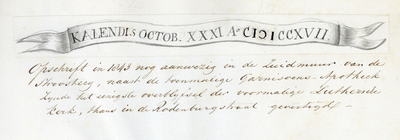 KALENDIS OCTOB. XXXI Aº CIƆIƆCCXVII.
Opschrift in 1843 nog aanwezig in de Zuidmuur van de
Stroosteeg naast de voormalige Garnisoens-Apotheek
zynde het eenigste overblyfsel der voormalige Luthersche
kerk, thans in de Rodenburgstraat gevestigd